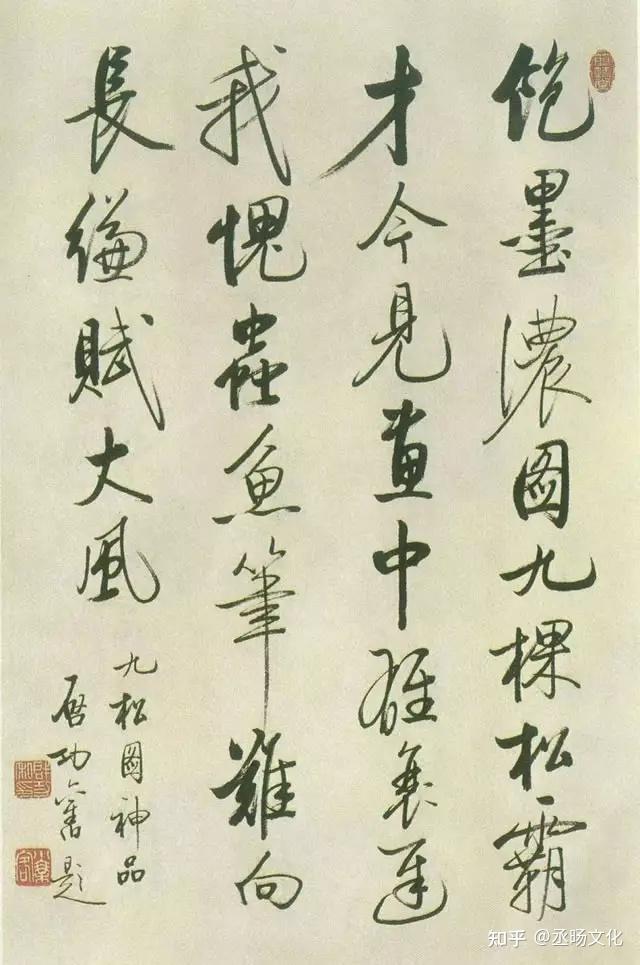 飽墨濃圖九棵松霸
才今見畫中雄衰遲
我愧蟲魚筆難向
長縑賦大風
九松圖神品
啓功舊題
知乎 @丞旸文化